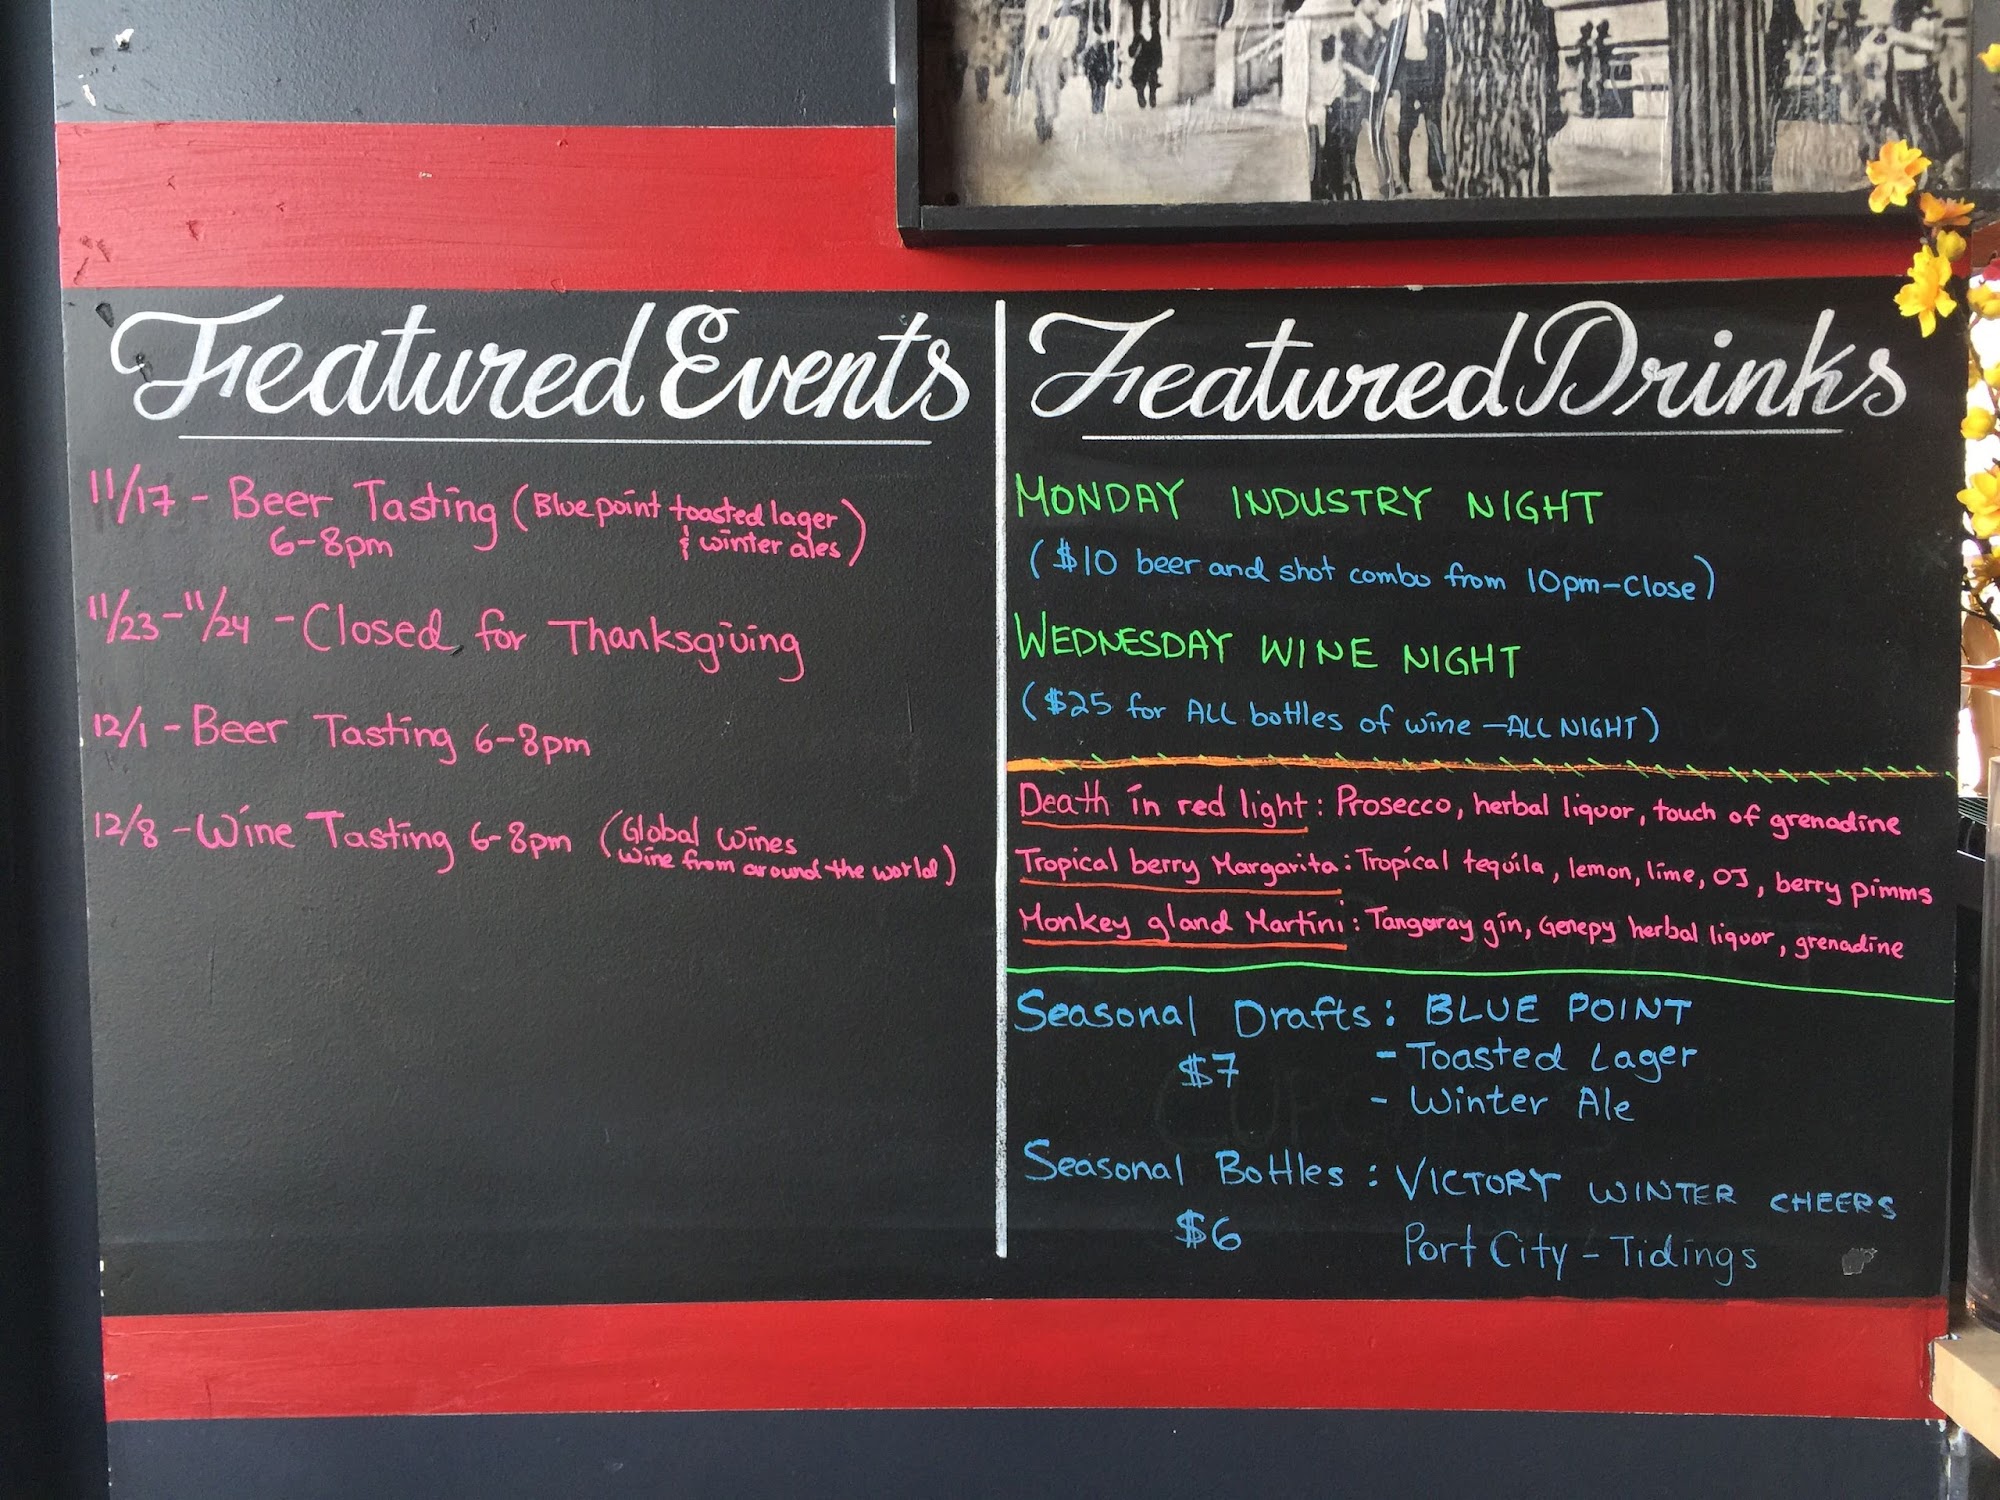 Featured Events
11/17 - Beer Tasting (Blue point toasted lager
6-8pm & winter ales)
11/23-11/24 - Closed for Thanksgiving
12/1 - Beer Tasting 6-8pm
12/8 - Wine Tasting 6-8pm (Global Wines
wine from around the world)
Featured Drinks
MONDAY INDUSTRY NIGHT
($10 beer and shot combo from 10pm-Close)
WEDNESDAY WINE NIGHT
($25 for ALL bottles of wine - ALL NIGHT)
Death in red light: Prosecco, herbal liquor, touch of grenadine
Tropical berry Margarita: Tropical tequila, lemon, lime, OJ, berry pimms
Monkey gland Martini: Tangaray gin, Genepy herbal liquor, grenadine
Seasonal Drafts: BLUE POINT
$7 - Toasted Lager
- Winter Ale
Seasonal Bottles: VICTORY WINTER CHEERS
$6 Port City - Tidings